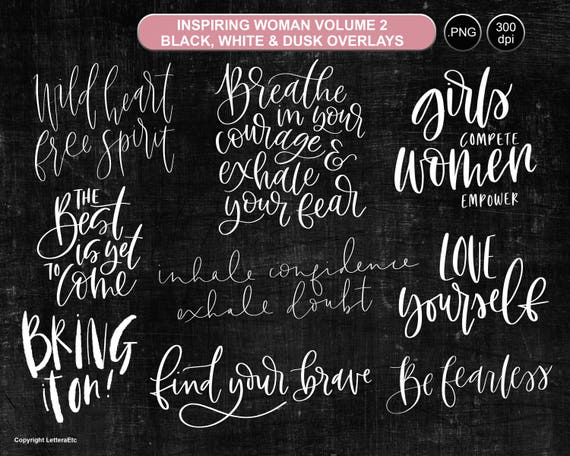 INSPIRING WOMAN VOLUME 2
BLACK, WHITE & DUSK OVERLAYS
.PNG
300
dpi
Wild heart
free spirit
Breathe
in your
courage &
exhale
your fear
girls
COMPETE
women
EMPOWER
THE
Best
is yet
TO
Come
inhale confidence
exhale doubt
LOVE
yourself
BRING
it on!
find your brave
Be fearless
Copyright LetteraEtc